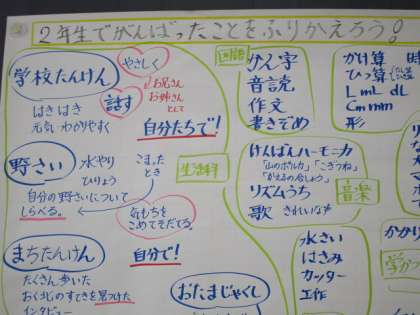 2年生でがんばったことをふりかえろう!
学校たんけん
やさしく
話す
お兄さん
お姉さん
として
はきはき
元気 わかりやすく
自分たちで!
野さい
水やり
ひりょう
こまった
とき
自分の野さいについて
しらべる。
気もちを
こめてそだてる。
自分で!
生活科
まちたんけん
たくさん歩いた
おく北のすてきを見つけた
インタビュー
おたまじゃくし
国語
かん字
音読
作文
書きぞめ
かけ算
ひっ算
L mL dL
Cm mm
形
時
けんばんハーモニカ
「山のポルカ」「こぎつね」
「かえるの合しょう」
リズムうち
歌 きれいな声
音楽
水さい
はさみ
カッター
工作
かけ
学か